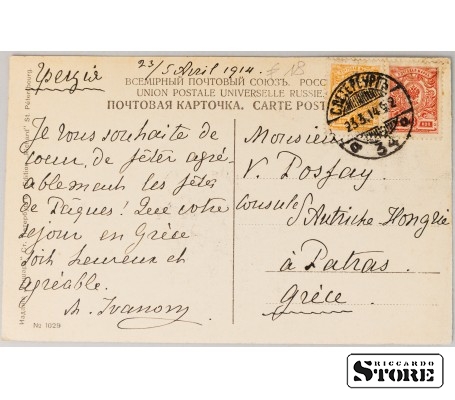 Греція
23/5 Avril 1914.
ВСЕМІРНЫЙ ПОЧТОВЫЙ СОЮЗЪ. РОСС
UNION POSTALE UNIVERSELLE RUSSIE.
ПОЧТОВАЯ КАРТОЧКА. CARTE POST
С.ПЕТЕРБУРГЪ
23.3.14
34
Je vous souhaite de
coeur, de fêter agré-
ablement les fêtes
de Pâques! Que votre
séjour en Grèce
soit heureux et
agréable.
A. Ivanow
Monsieur
V. Posfay
Consule d'Autriche-Hongrie
à Patras.
Grèce
St. Pétersbourg
№ 1029
RICCARDO
STORE